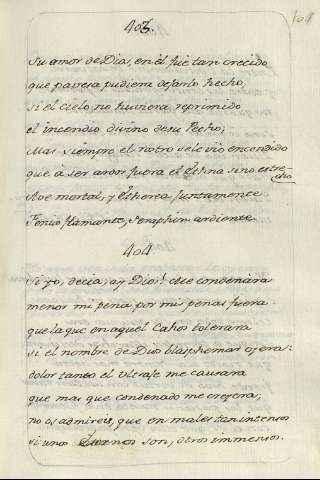 104
403.
Su amor de Dios, en él fue tan crecido
que pavesa pudiera dejarlo hecho,
si el Cielo no huviera reprimido
el incendio divino de su Pecho;
Mas siempre el rostro se le vió encendido
que à ser ardor fuera el Ethna sino estre-
cho
Ave mortal, y Etherea juntamente
Fenix flamante, Seraphin ardiente.
404.
Si yo, decia, ay Dios! Me condenàra
menor mi pena por mis penas fuera
que la que en aquel Cahos tolerara
si el nombre de Dios blasphemar oyera:
dolor tanto el ultraje me causara
que mas que condenado me creyera;
no os admireis, que en males tan intensos
si unos buenos son, otros immensos.